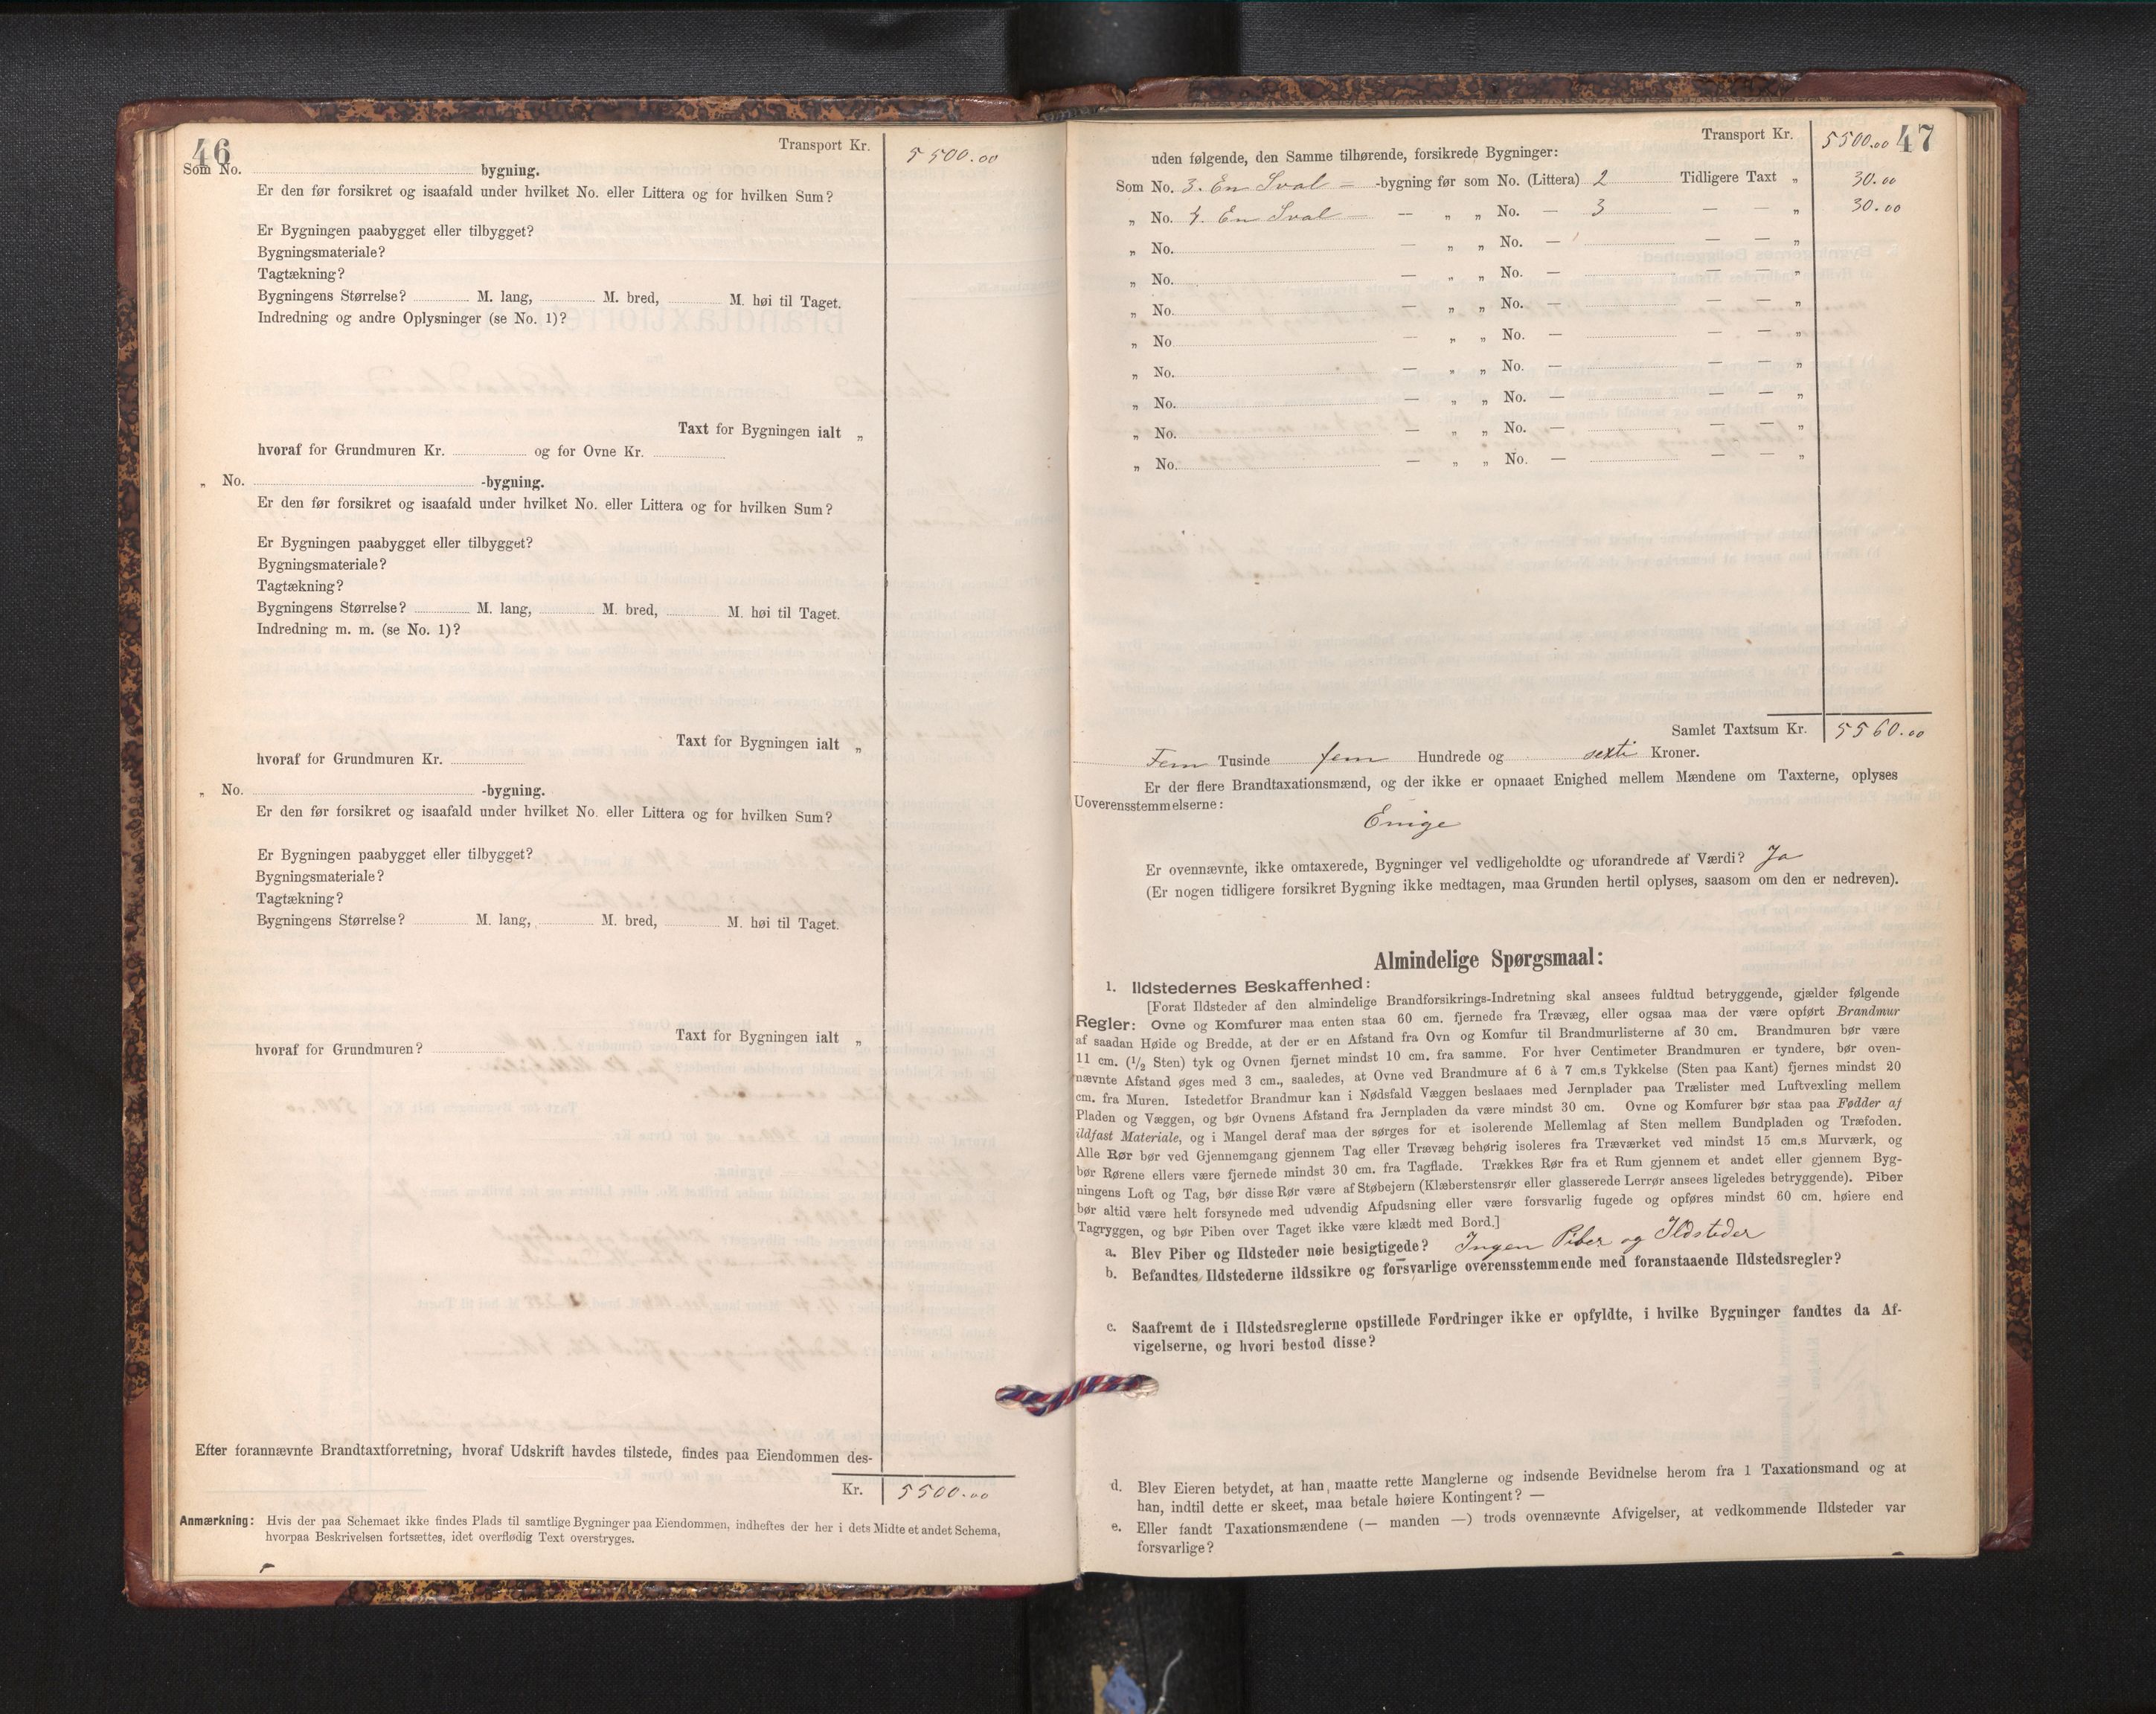 46
Transport Kr. 5500.00
Som No. bygning.
Er den før forsikret og isaafald under hvilket No. eller Littera og for hvilken Sum?
Er Bygningen paabygget eller tilbygget?
Bygningsmateriale?
Tagtækning?
Bygningens Størrelse? M. lang, M. bred, M. høi til Taget.
Indredning og andre Oplysninger (se No. 1)?
Taxt for Bygningen ialt „
hvoraf for Grundmuren Kr. og for Ovne Kr.
„ No. -bygning.
Er den før forsikret og isaafald under hvilket No. eller Littera og for hvilken Sum?
Er Bygningen paabygget eller tilbygget?
Bygningsmateriale?
Tagtækning?
Bygningens Størrelse? M. lang, M. bred, M. høi til Taget.
Indredning m. m. (se No. 1)?
Taxt for Bygningen ialt „
hvoraf for Grundmuren Kr.
„ No. -bygning.
Er den før forsikret og isaafald under hvilket No. eller Littera og for hvilken Sum?
Er Bygningen paabygget eller tilbygget?
Bygningsmateriale?
Tagtækning?
Bygningens Størrelse? M. lang, M. bred, M. høi til Taget.
Taxt for Bygningen ialt „
hvoraf for Grundmuren?
Efter forannævnte Brandtaxtforretning, hvoraf Udskrift havdes tilstede, findes paa Eiendommen des-
Kr. 5500.00
Anmærkning: Hvis der paa Schemaet ikke findes Plads til samtlige Bygninger paa Eiendommen, indheftes der her i dets Midte et andet Schema,
hvorpaa Beskrivelsen fortsættes, idet overflødig Text overstryges.
47
Transport Kr. 5500.00
uden følgende, den Samme tilhørende, forsikrede Bygninger:
Som No. 3. En Sval — -bygning før som No. (Littera) 2 Tidligere Taxt „ 30.00
„ No. 4. En Sval — — „ „ No. — 3 — — „ 30.00
„ No. — „ „ No. — — — „
„ No. — „ „ No. — — — „
„ No. — „ „ No. — — — „
„ No — „ „ No. — — — „
„ No. — „ „ No. — — — „
„ No. — „ „ No. — — — „
„ No. — „ „ No. — — — „
„ No. — „ „ No. — — — „
Samlet Taxtsum Kr. 5560.00
Fem Tusinde fem Hundrede og sexti Kroner.
Er der flere Brandtaxationsmænd, og der ikke er opnaaet Enighed mellem Mændene om Taxterne, oplyses
Uoverensstemmelserne:
Enige
Er ovennævnte, ikke omtaxerede, Bygninger vel vedligeholdte og uforandrede af Værdi? Ja
(Er nogen tidligere forsikret Bygning ikke medtagen, maa Grunden hertil oplyses, saasom om den er nedreven).
Almindelige Spørgsmaal:
1. Ildstedernes Beskaffenhed:
[Forat Ildsteder af den almindelige Brandforsikrings-Indretning skal ansees fuldtud betryggende, gjælder følgende
Regler: Ovne og Komfurer maa enten staa 60 cm. fjernede fra Trævæg, eller ogsaa maa der være opført Brandmur
af saadan Høide og Bredde, at der er en Afstand fra Ovn og Komfur til Brandmurlisterne af 30 cm. Brandmuren bør være
11 cm. (1/2 Sten) tyk og Ovnen fjernet mindst 10 cm. fra samme. For hver Centimeter Brandmuren er tyndere, bør oven-
nævnte Afstand øges med 3 cm., saaledes, at Ovne ved Brandmure af 6 á 7 cm.s Tykkelse (Sten paa Kant) fjernes mindst 20
cm. fra Muren. Istedetfor Brandmur kan i Nødsfald Væggen beslaaes med Jernplader paa Trælister med Luftvexling mellem
Pladen og Væggen, og bør Ovnens Afstand fra Jernpladen da være mindst 30 cm. Ovne og Komfurer bør staa paa Fødder af
ildfast Materiale, og i Mangel deraf maa der sørges for et isolerende Mellemlag af Sten mellem Bundpladen og Træfoden.
Alle Rør bør ved Gjennemgang gjennem Tag eller Trævæg behørig isoleres fra Træværket ved mindst 15 cm.s Murværk, og
bør Rørene ellers være fjernede mindst 30 cm. fra Tagflade. Trækkes Rør fra et Rum gjennem et andet eller gjennem Byg-
ningens Loft og Tag, bør disse Rør være af Støbejern (Klæberstensrør eller glasserede Lerrør ansees ligeledes betryggende). Piber
bør altid være helt forsynede med udvendig Afpudsning eller være forsvarlig fugede og opføres mindst 60 cm. høiere end
Tagryggen, og bør Piben over Taget ikke være klædt med Bord.]
a. Blev Piber og Ildsteder nøie besigtigede? Ingen Piber og Ildsteder
b. Befandtes Ildstederne ildssikre og forsvarlige overensstemmende med foranstaaende Ildstedsregler?
c. Saafremt de i Ildstedsreglerne opstillede Fordringer ikke er opfyldte, i hvilke Bygninger fandtes da Af-
vigelserne, og hvori bestod disse?
d. Blev Eieren betydet, at han maatte rette Manglerne og indsende Bevidnelse herom fra 1 Taxationsmand og at
han, indtil dette er skeet, maa betale høiere Kontingent? —
e. Eller fandt Taxationsmændene (— manden —) trods ovennævnte Afvigelser, at vedkommende Ildsteder var
forsvarlige?